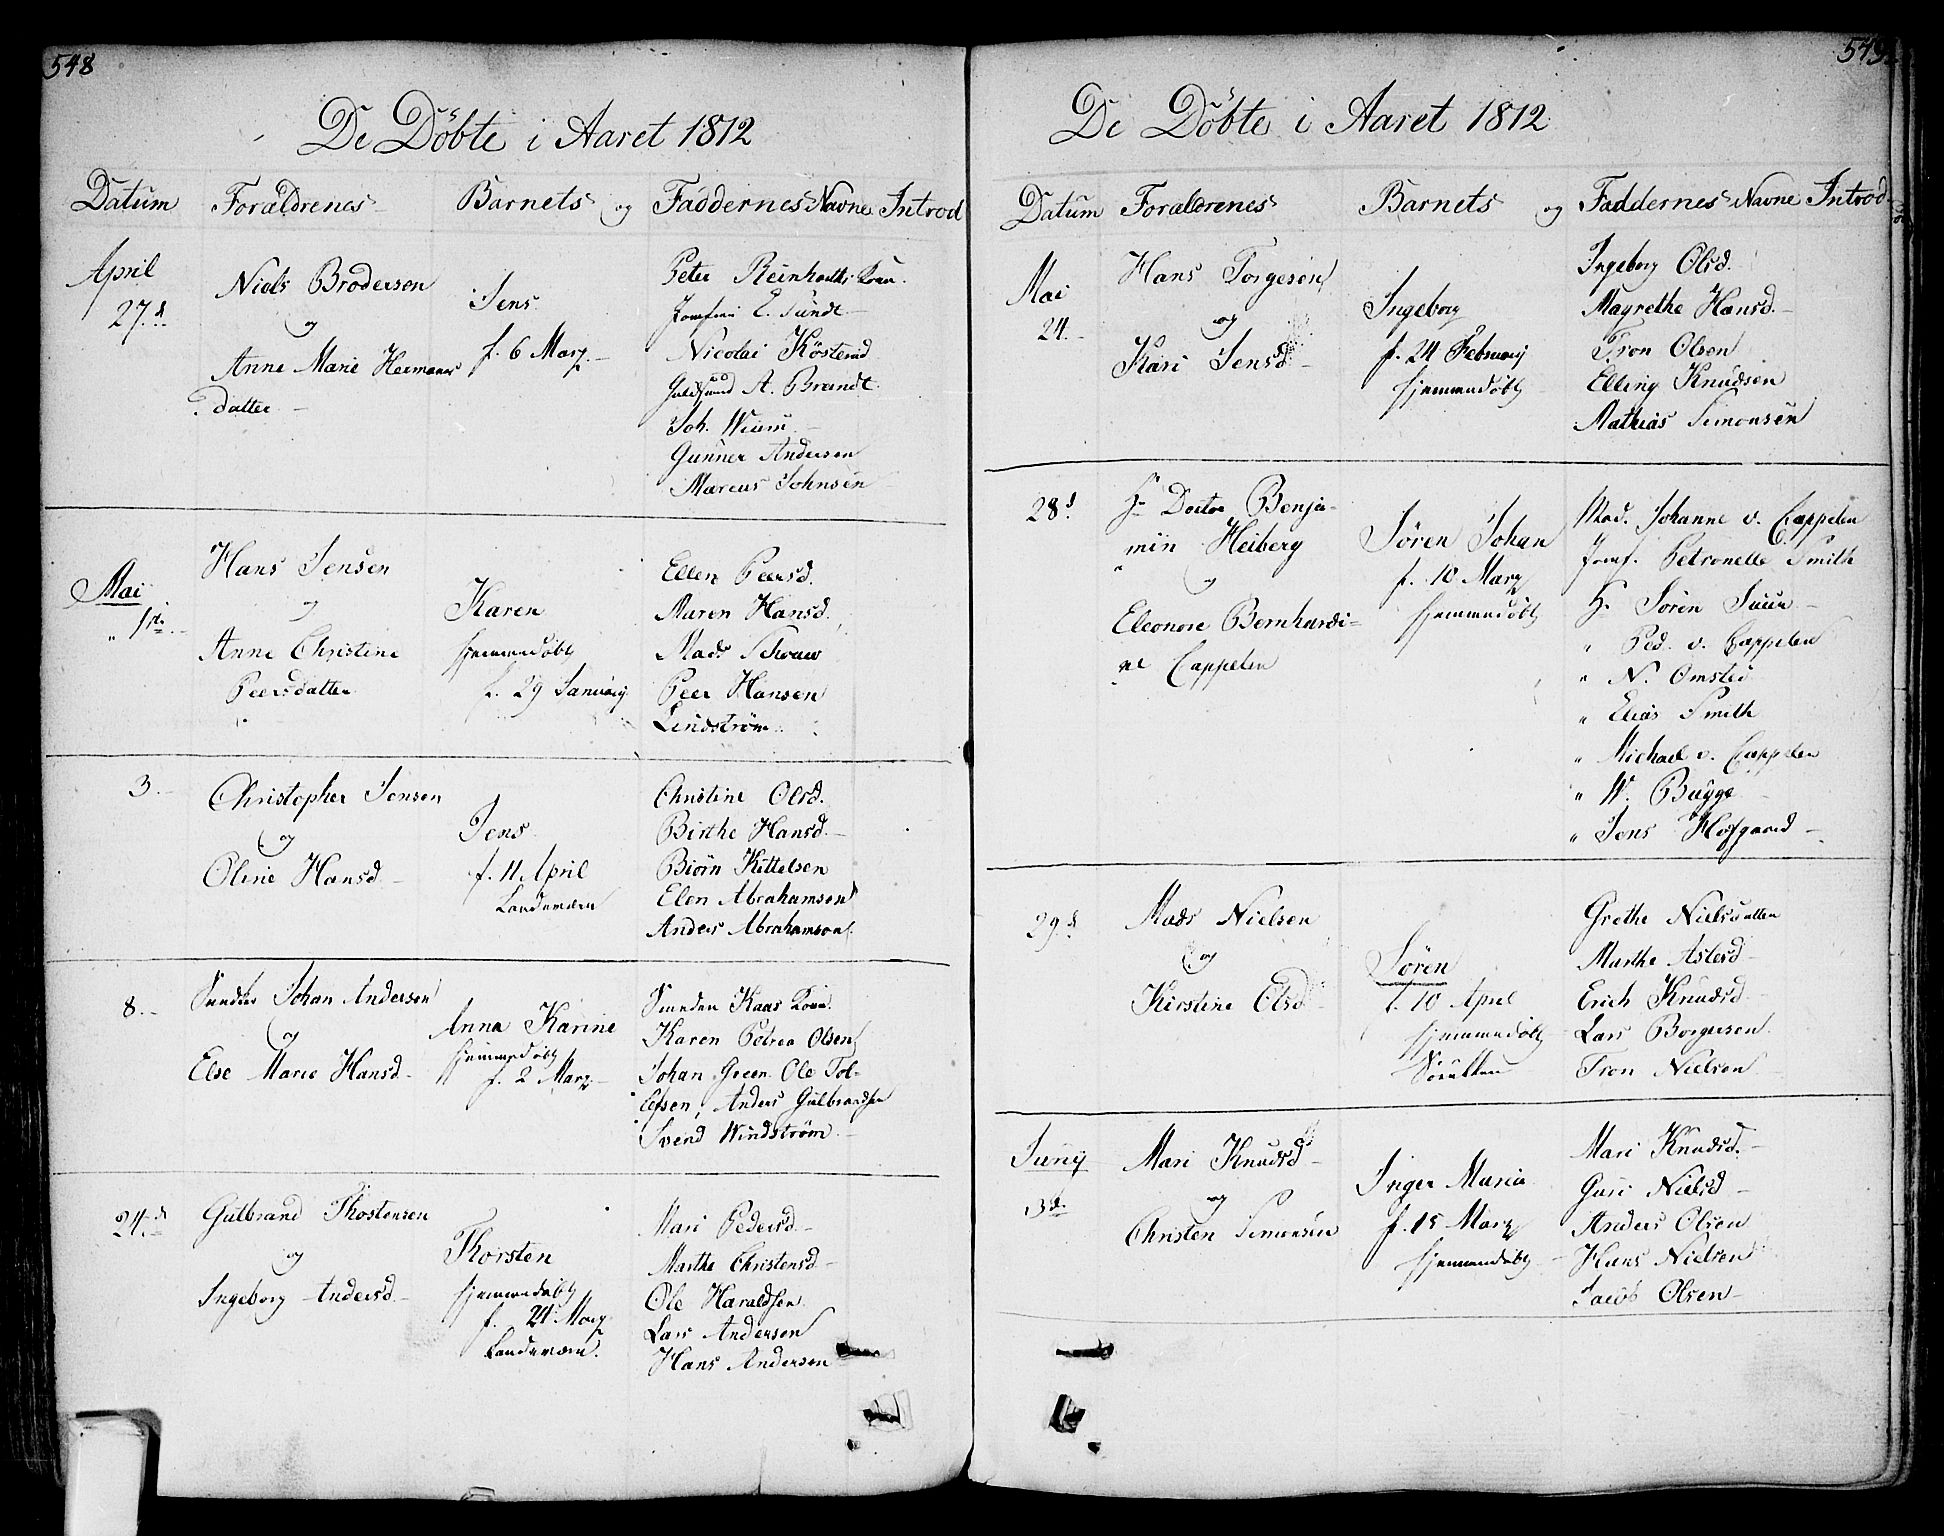 548
De Döbte i Aaret 1812
Datum Forældrenes Barnets og Faddernes Navne Introd
April
27.d
Niels Brodersen
og
Anne Marie Hermans
datter
Jens
f. 6 Marz.
Peter Reinhardts Kone.
Jomfru E. Sundt
Nicolai Kösterud
A. Brandt
Joh. Wium
Gunner Andersen
Marcus Johnsen
Mai
1ste
Hans Jensen
og
Anne Christine
Peersdatter
Karen
hjemmedöbt
f. 29 Januarij
Ellen Peersd.
Maren Hansd.
Mads Schouw
Peer Hansen
Lindström
3.
Christopher Jensen
og
Oline Hansd
Jens
f. 11 April
Landeværn
Christine Olsd.
Birthe Hansd.
Biörn Kittelsen
Elen Abrahamsen
Anders Abrahamson
8.
Johan Andersen
og
Else Marie Hansd
Anna Karine
hjemmedöbt
f. 2 Marz
Kaas Kone.
Karen Petrea Olsen
Johan Green. Ole Tol-
lefsen, Anders Gulbrandsen
Svend Windström
24.d
Gulbrand Thostensen
og
Ingeborg Andersd
Thorsten
hjemmedöbt
f. 21 Marz
Landeværn.
Mari Pedersd
Marthe Christensd
Ole Haraldsen
Lars Andersen
Hans Andersen
549
De Döbte i Aaret 1812
Datum Forældrenes Barnets og Faddernes Navne Introd
Mai
24.
Hans Torgesen
og
Kari Jensd
Ingeborg
f. 24 Februarij
hjemmedöbt
Ingeborg Olsd.
Magrethe Hansd.
Tron Olsen
Elling Knudsen
Mathias Simonsen
28d.
Hr Doctor Benja-
min Heiberg
og
Eleonore Bernhardi-
ne Cappelen
Sören Johan
f. 10 Marz
hjemmedöbt
Mad. Johanne v. Cappelen
Jomf. Petronelle Smith
Hr Sören Juur
" Ped. v. Cappelen
" N. Omsted
" Elias Smith
" Michael v. Cappelen
" W. Bugge
" Jens Hofgaard
29.d
Mads Nielsen
og
Kirstine Olsd
Sören
f. 10 April
hjemmedöbt
Grethe Nielsdatten
Marthe Aslesd
Erich Knudsd
Lars Borgersen
Tron Nielsen
Junij
3d.
Mari Knudsd
og
Christen Simonsen
Inger Maria
f. 15 Marz
hjemmedöbt
Mari Knudsd.
Guri Nielsd
Anders Olsen
Hans Nielsen
Jacob Olsen